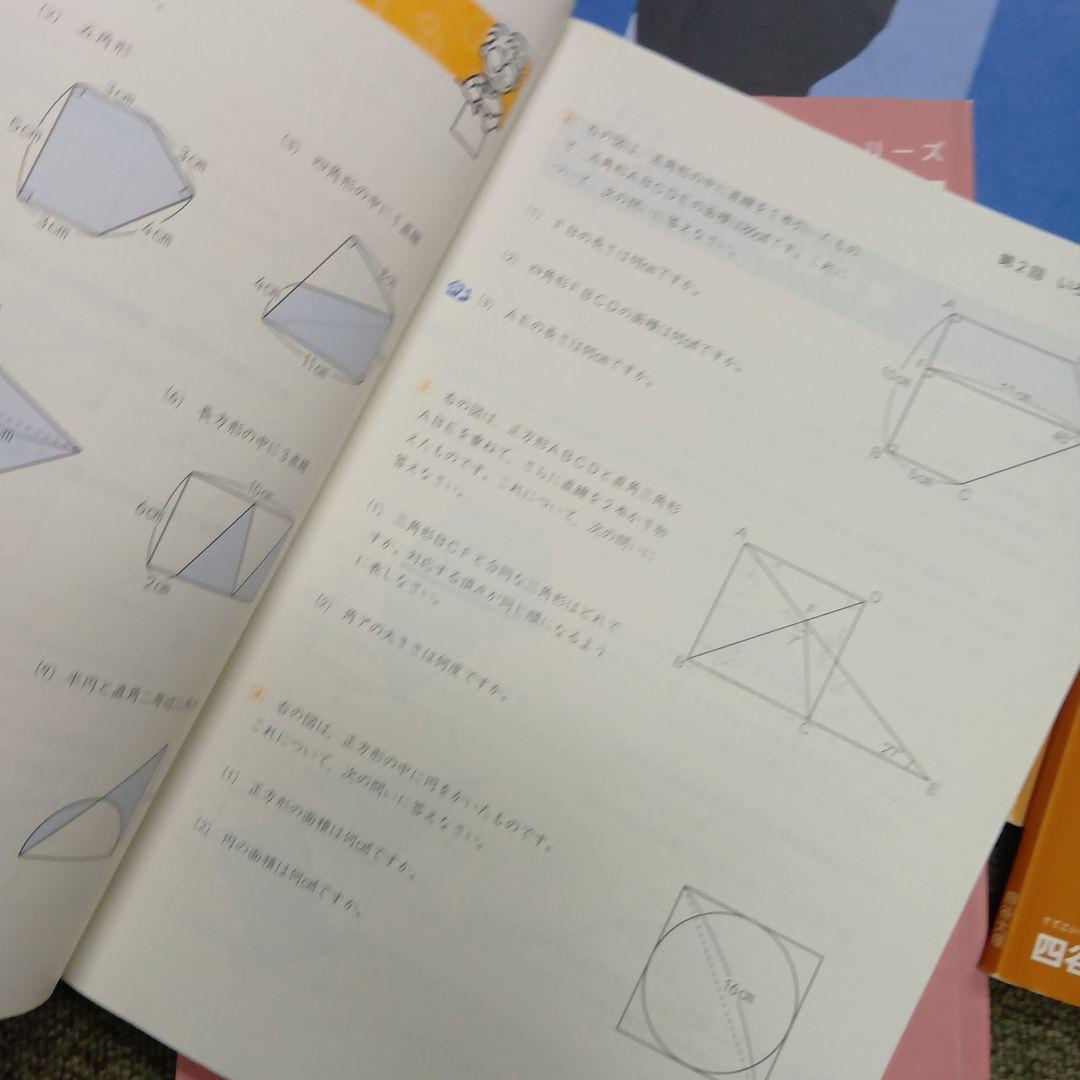 (2) 五角形
3cm
6cm
3cm
3cm
4cm
(3) 四角形の中に1直線
4cm
11cm
(6) 長方形の中に3直線
10cm
6cm
2cm
cm
(9) 半円と直角二等辺三角
リーズ
第2回
2 右の図は、五角形の中に直線を1本引いたもの
で、五角形ABCDEの面積は
です。これに
ついて、次の問いに答えなさい。
(1) FBの長さは何cmですか。
(2) 四角形FBCDの面積は何cm²ですか。
(3) AEの長さは何cmですか。
A
F
B
C
3 右の図は、正方形ABCDと直角三角形
ABEを重ねて、さらに直線を2本かき加
えたものです。これについて、次の問いに
答えなさい。
(1) 三角形BCFと合同な三角形はどれで
すか。対応する頂点が同じ順になるよう
に表しなさい。
(2) 角アの大きさは何度ですか。
A
D
F
ア
B
C
E
4 右の図は、正方形の中に円をかいたものです。
これについて、次の問いに答えなさい。
(1) 正方形の面積は何cm²ですか。
(2) 円の面積は何cm²ですか。
16cm
四谷大塚
四谷